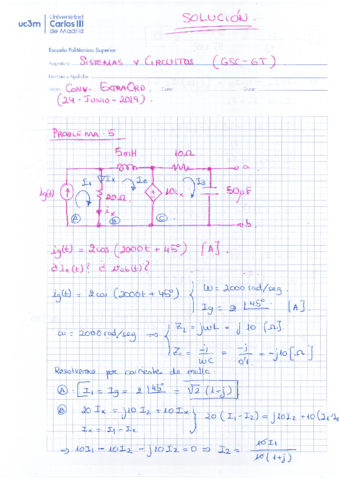 SOLUCIÓN.
uc3m Universidad
Carlos III
de Madrid
Escuela Politécnica Superior
Asignatura SISTEMAS Y CIRCUITOS (GSC-GT)
Nombre y Apellidos
CONV. EXTRAORD. Curso Grupo
(24-JUNIO-2019).
PROBLEMA-5
5mH 10Ω
a
I1 Ix I2 I3
ig(t) 20Ω 10ix 50μF
ix
A B C b
ig(t) = 2cos (2000t + 45°) [A].
¿ix(t)? ¿Vab(t)?
ig(t) = 2cos (2000t + 45°) { ω = 2000 rad/seg
Ig = 2 |45° [A]
ω = 2000 rad/seg ⇒ { ZL = jωL = j 10 [Ω].
Zc = -j/ωC = -j/0'1 = -j10 [Ω]
Resolvemos por corrientes de malla:
A : I1 = Ig = 2 |45° = √2 (1+j)
B 20 Ix = j10 I2 + 10 Ix } 20 (I1 - I2) = j10 I2 + 10 (I1-I2
Ix = I1 - I2
⇒ 10I1 - 10I2 - j10 I2 = 0 ⇒ I2 = 10 I1 / 10 (1+j)